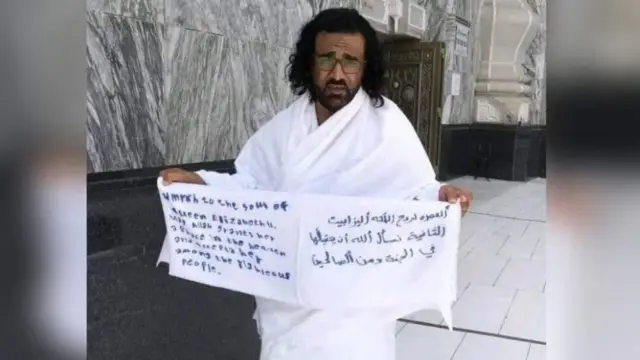 umrah to the soul of
Queen Elizabeth II
May Allah grants her
a Place in the heaven
and accepts her
among the righteous
people.
العمرة لروح الملكة اليزابيت
الثانية نسأل الله أن يتقبلها
في الجنة ومن الصالحين